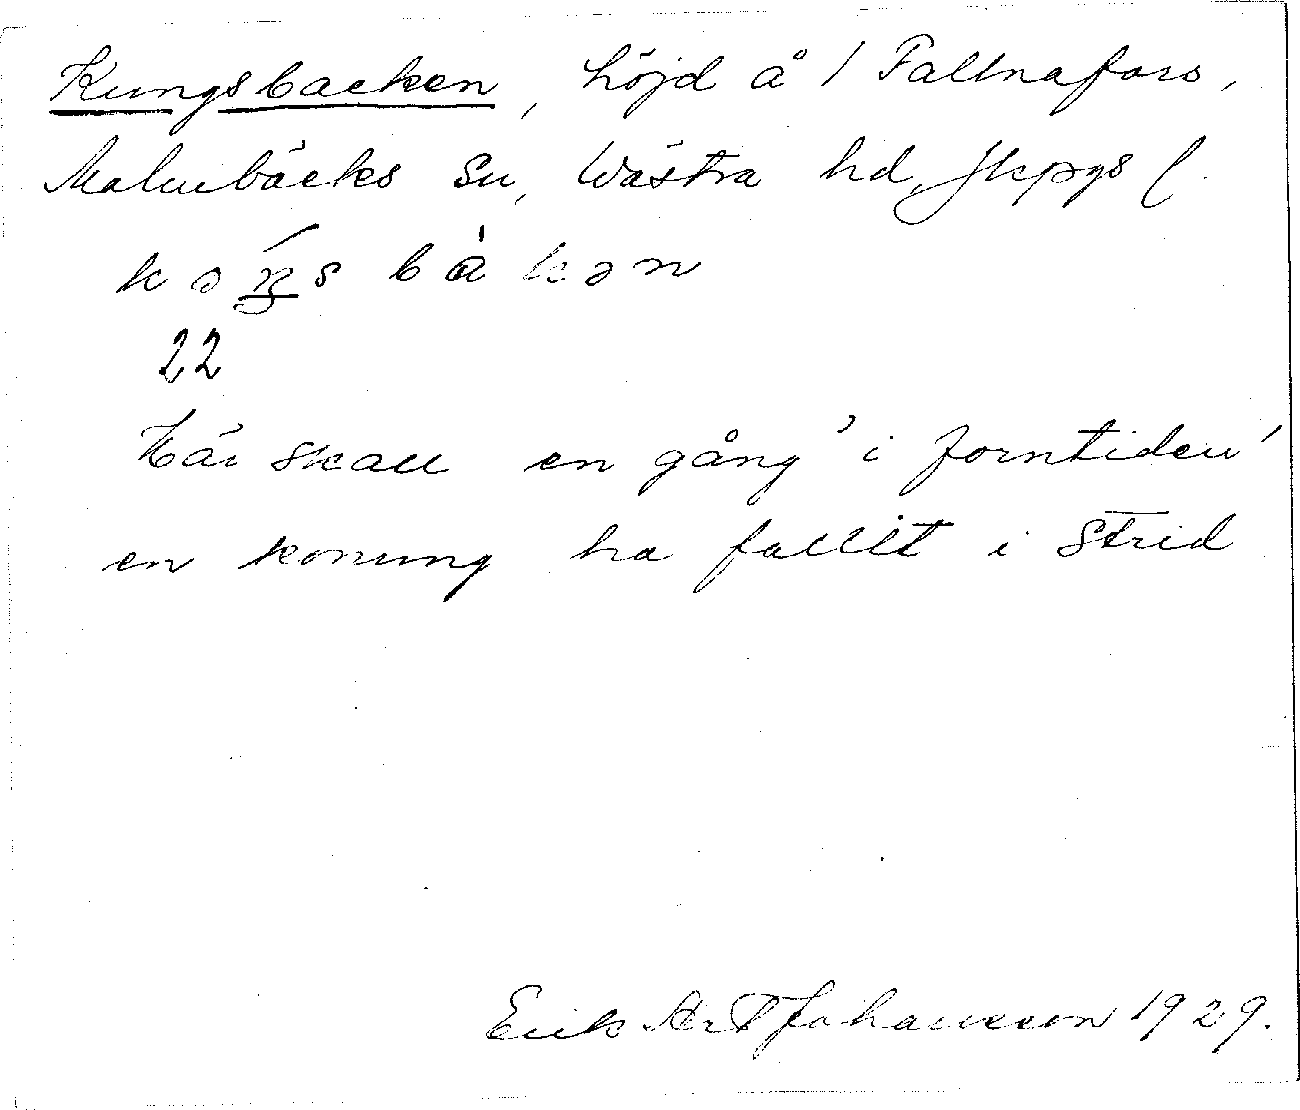 Kungsbacken, höjd å / Fallnafors,
Malmbäcks sn, Västra hd, Jkpgs l.
22
Här skall en gång 'i forntiden'
en konung ha fallit i strid
Erik Johansson 1929.